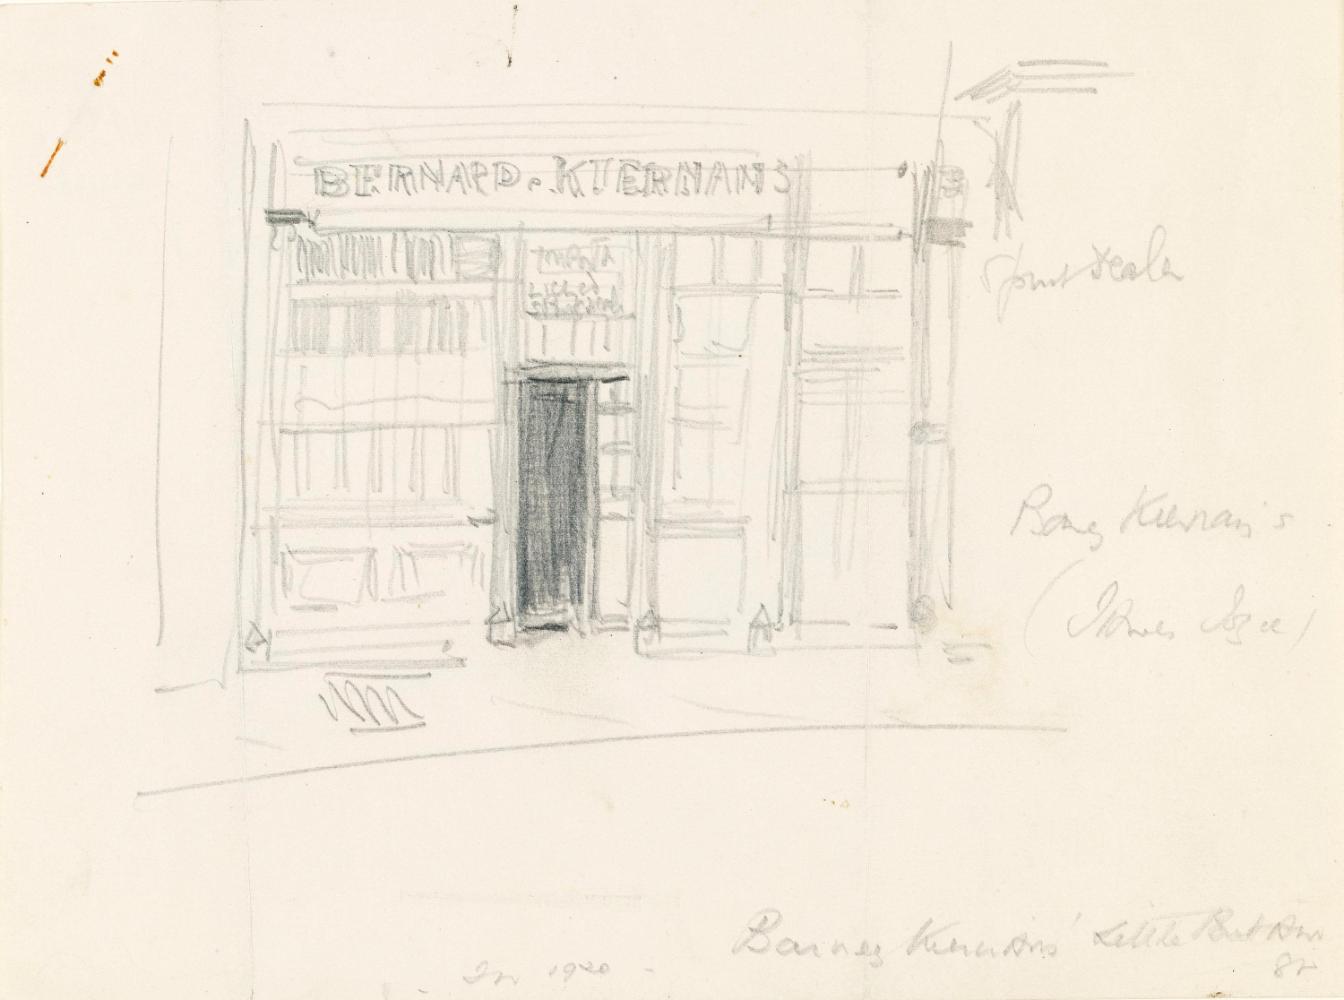 BERNARD. KIERNANS
Licsed
Spirit Dealer
Barney Kiernan's
(James Joyce)
Barney Kiernans' Little Britain
St
In 1920 -